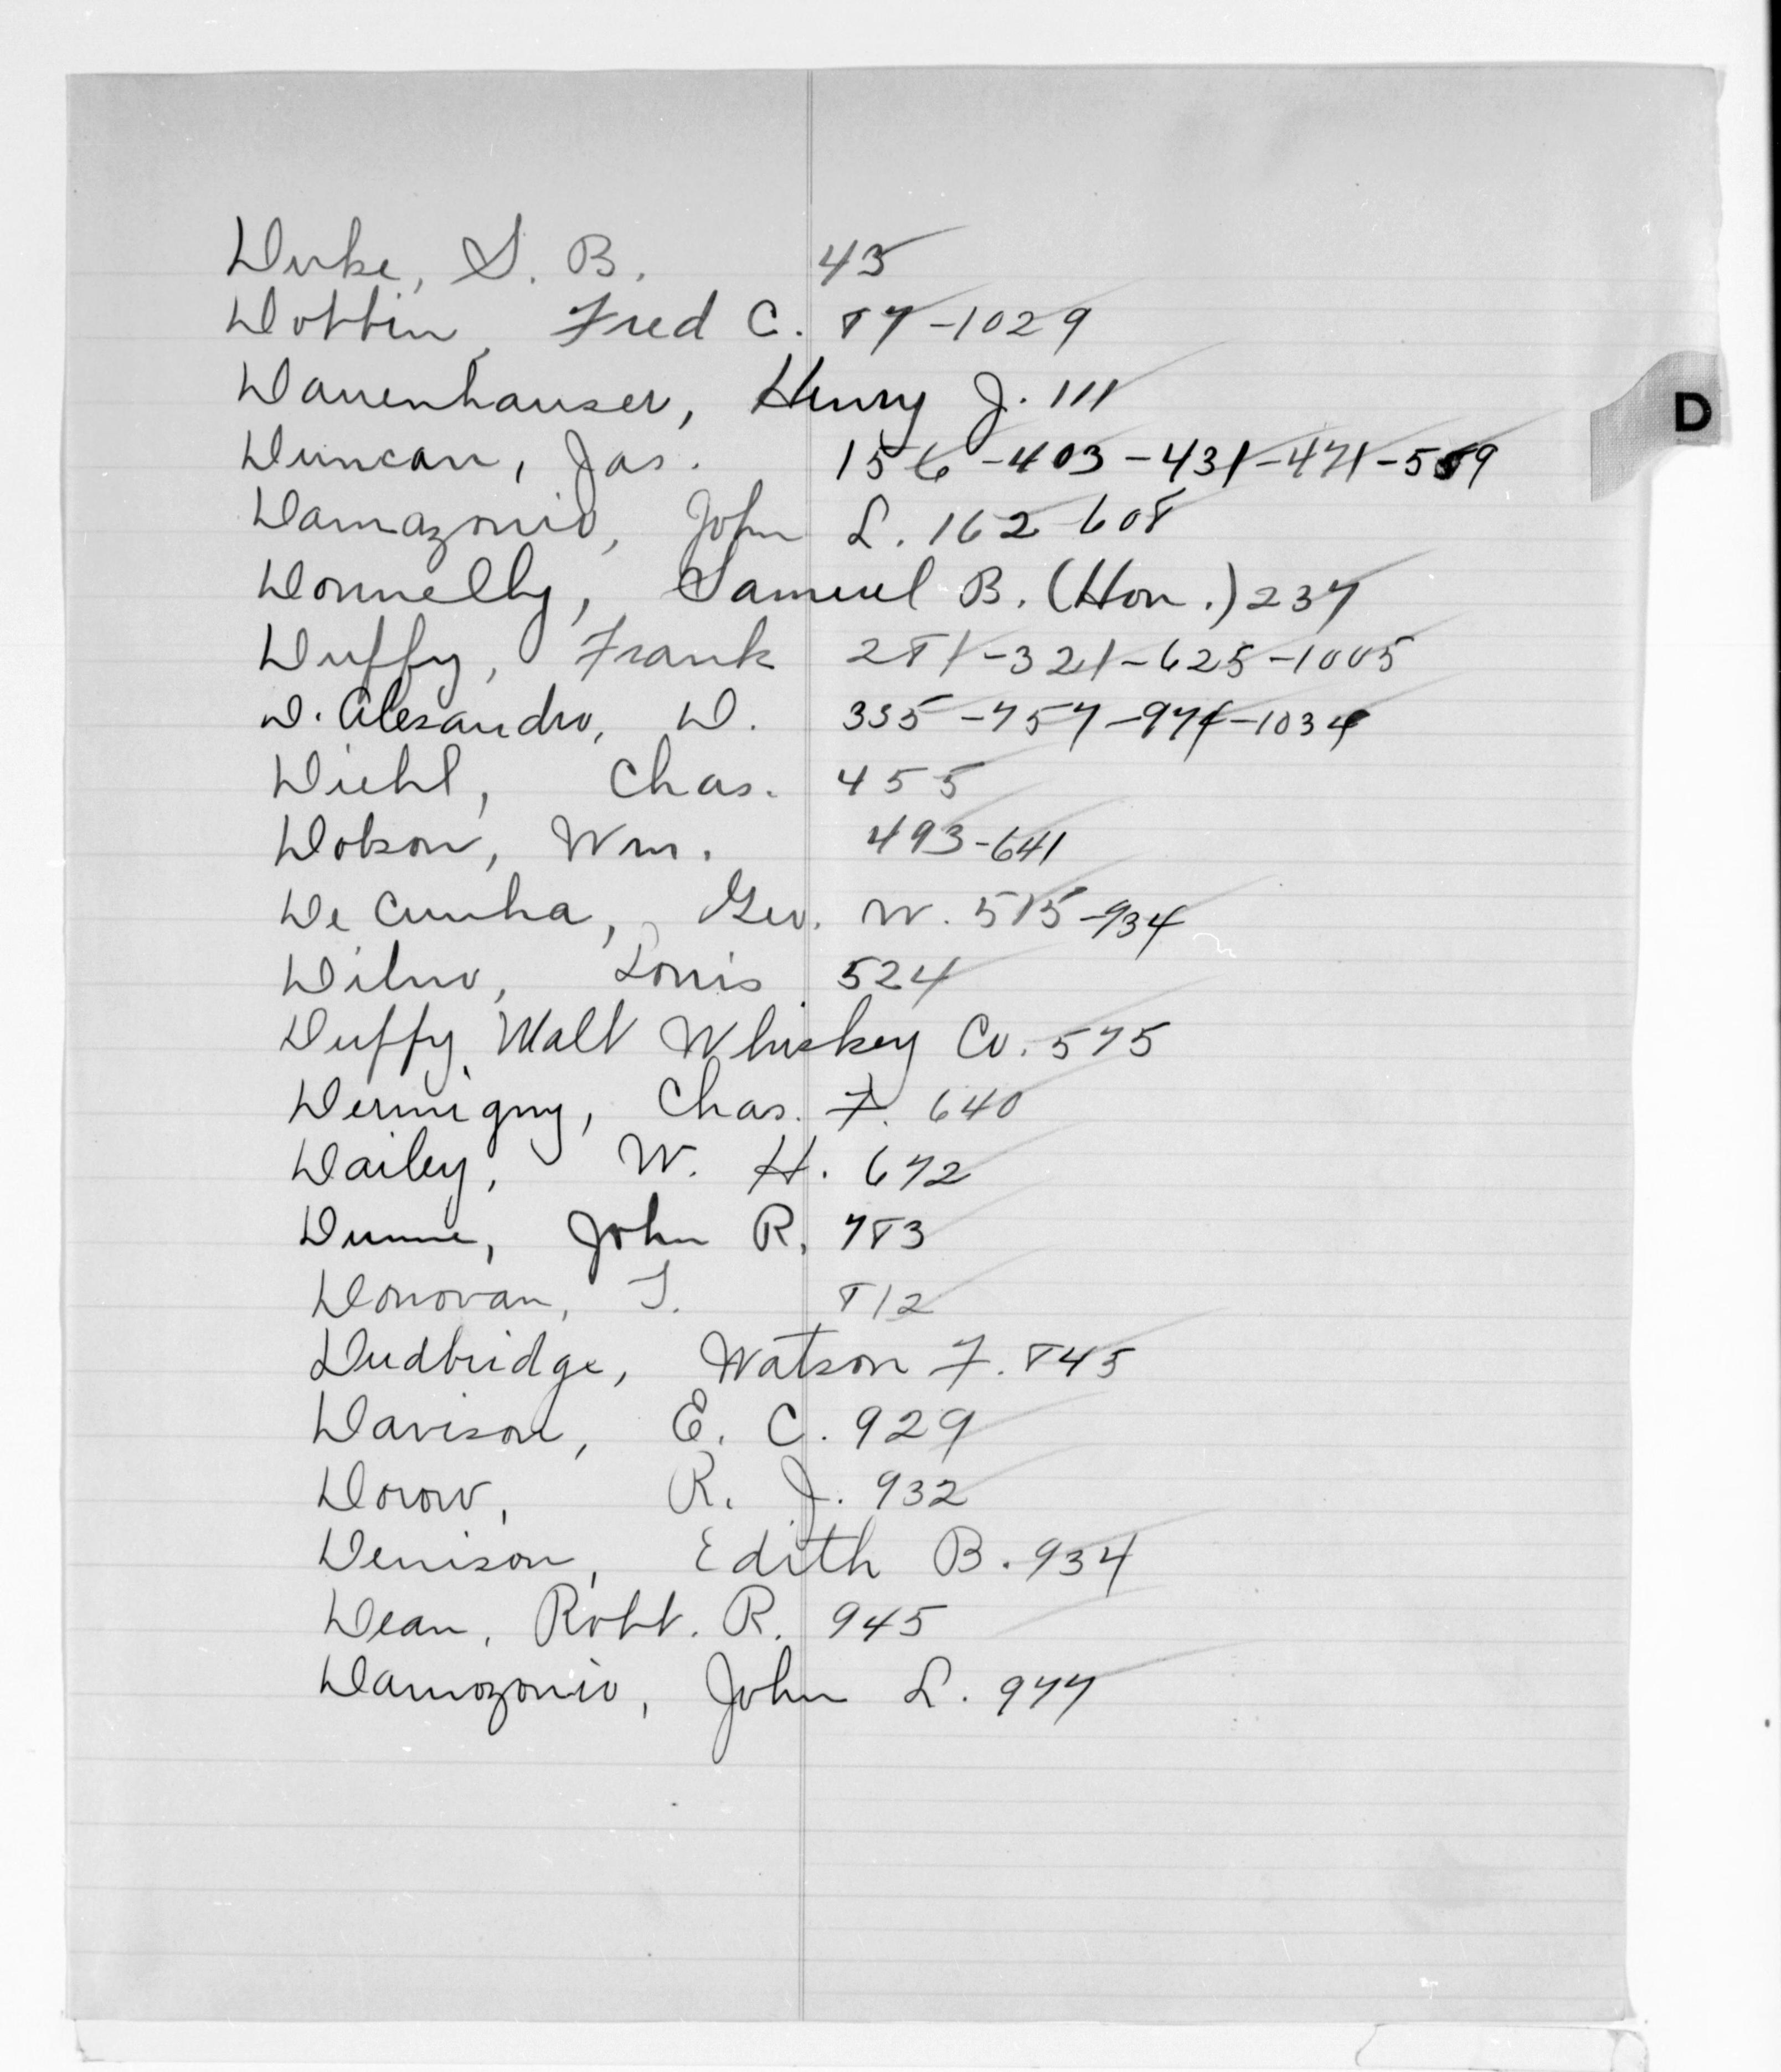 Duke, S. B. 43
Dobbin, Fred C. 87-1029
D
Dannenhauser, Henry J. 111
Duncan, Jas. 156-403-431-471-589
Damazonio, John L. 162-608
Donnelly, Samuel B. (Hon.) 237
Duffy, Frank 281-321-625-1005
D. Alesandro, D. 335-757-974-1034
Diehl, Chas. 455
Dobson, Wm. 493-641
De Cunha, Geo. W. 515-934
Dilno, Louis 524
Duffy Malt Whiskey Co. 575
Dermigny, Chas. F. 640
Dailey, W. H. 672
Dunne, John R. 783
Donovan, T. 812
Dudbridge, Watson F. 845
Davison, E. C. 929
Dorow, R. J. 932
Denison, Edith B. 934
Dean, Robt. R. 945
Damozonio, John L. 977